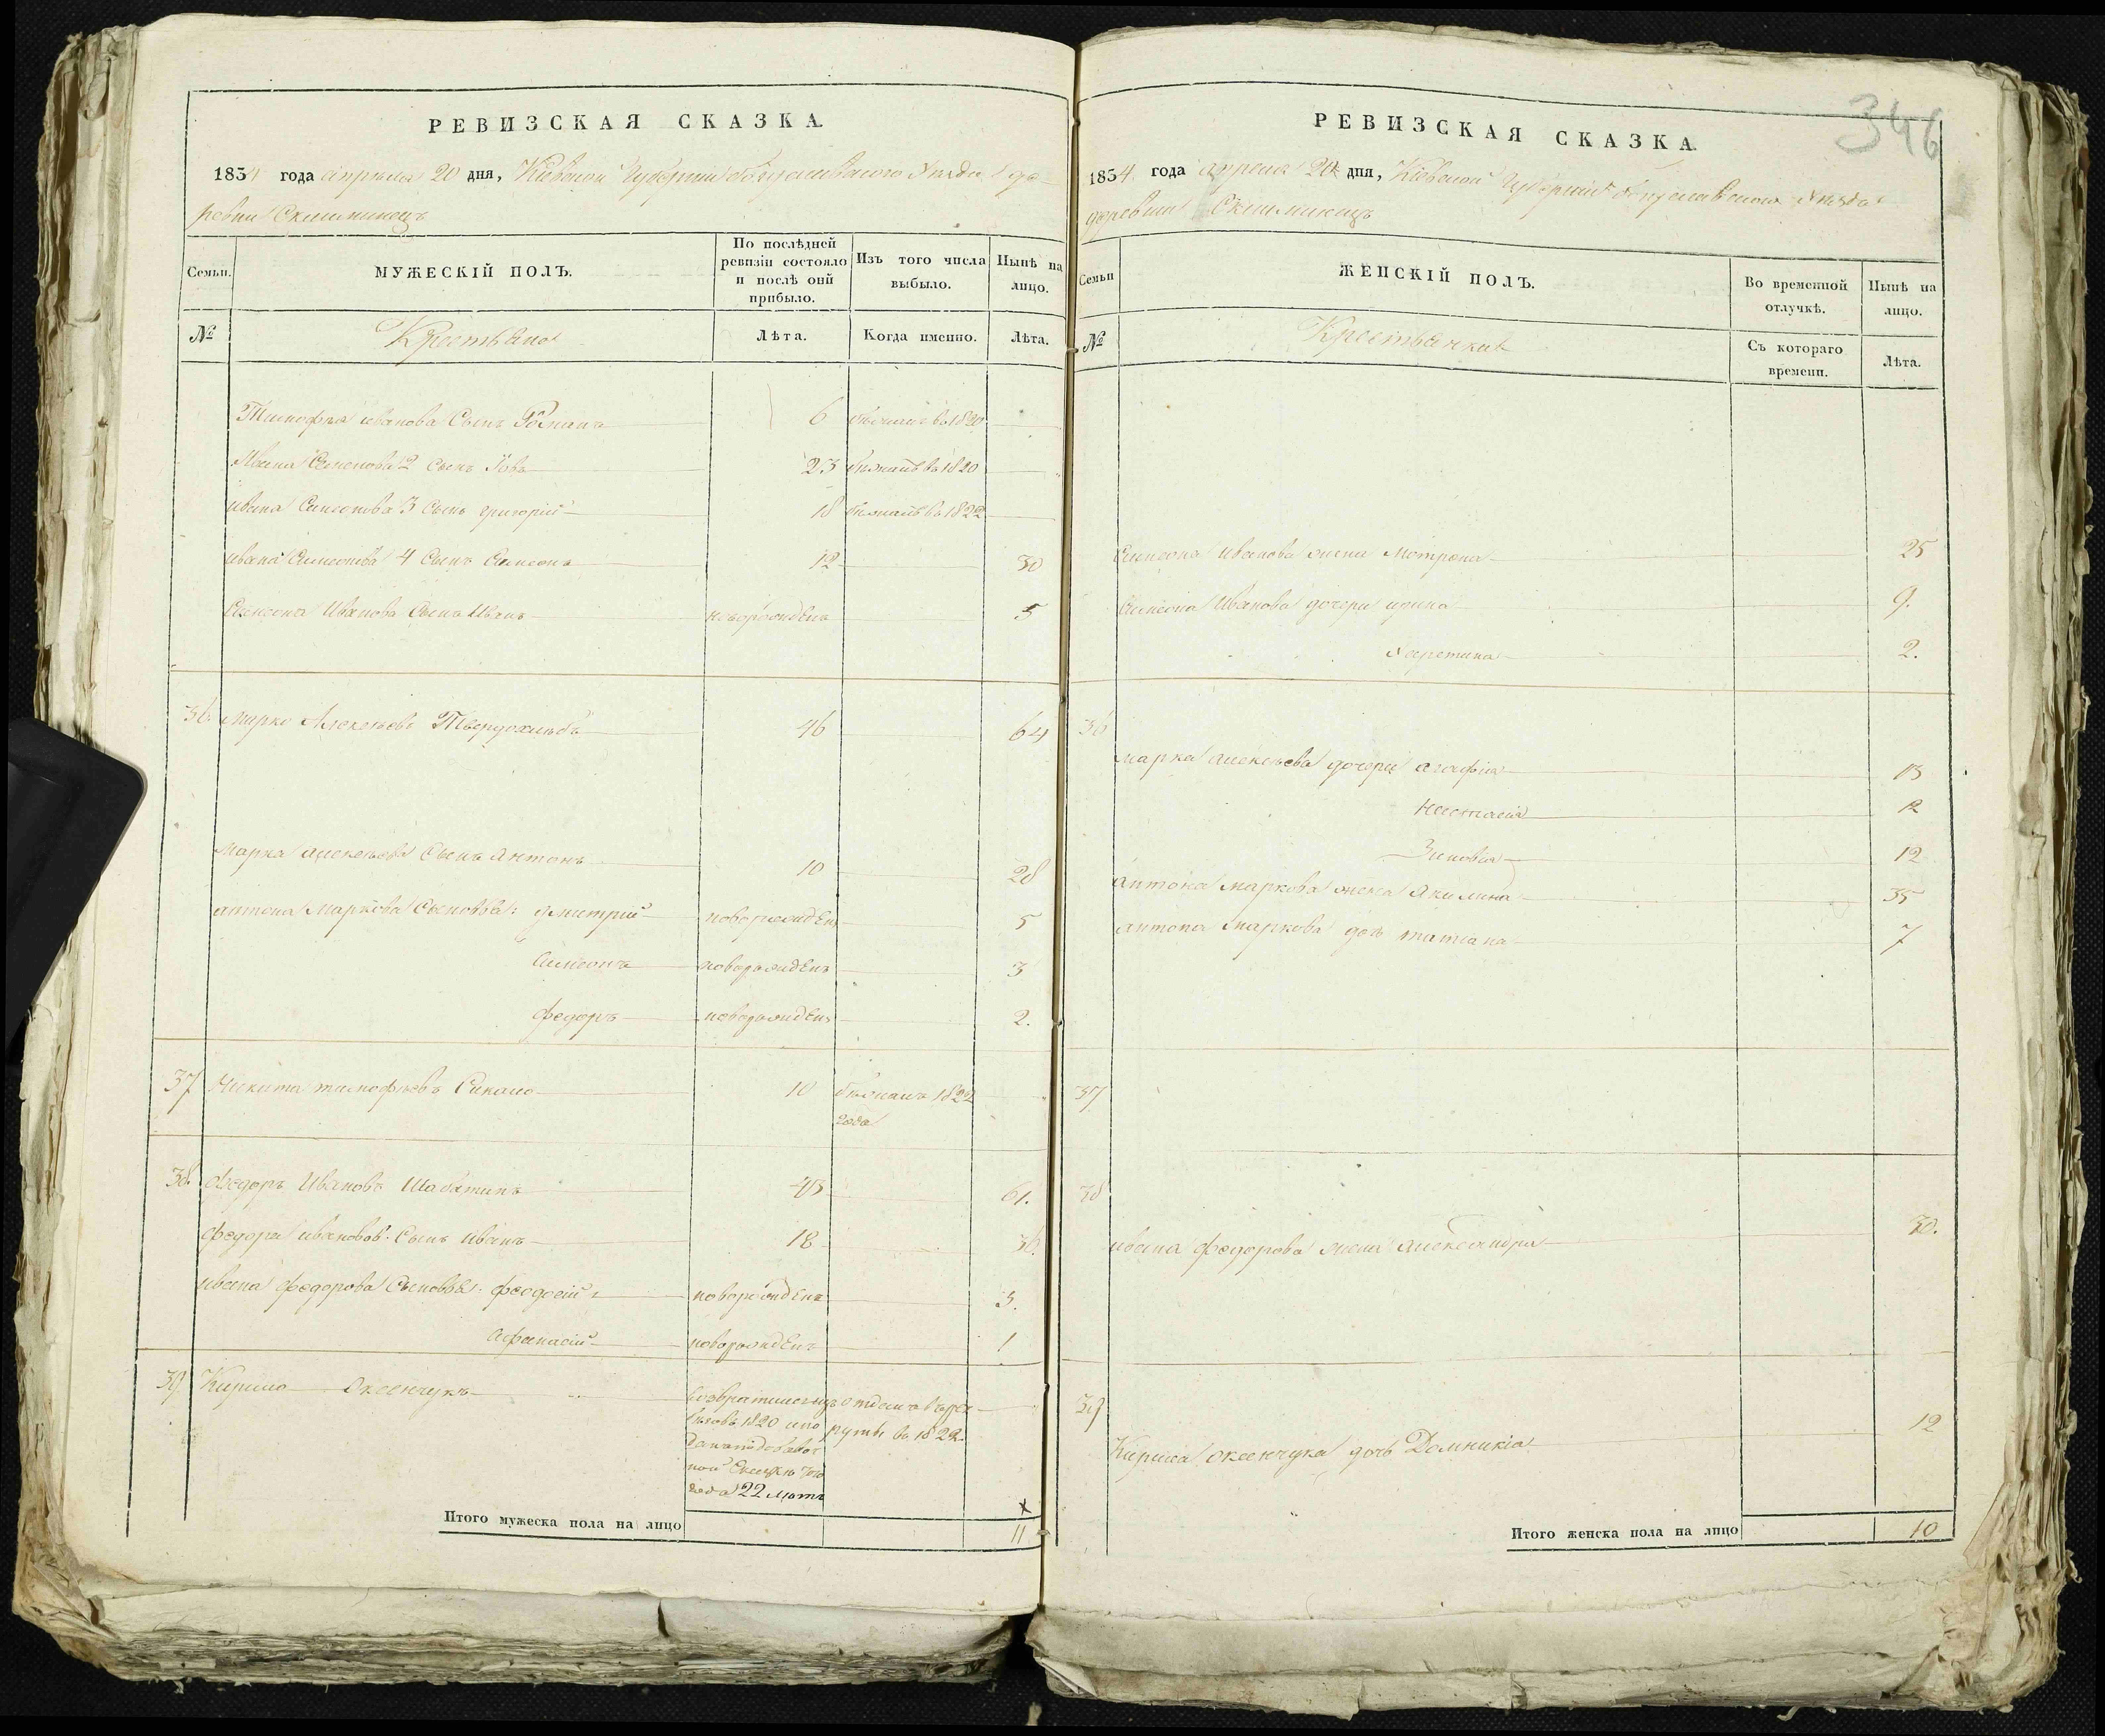 346
РЕВИЗСКАЯ СКАЗКА.
1834 года апреля 20 дня, Кіевской Губерніи Богуславскаго Уезда де-
ревни
Семьи.
МУЖЕСКІЙ ПОЛЪ.
По послѣдней ревизіи состояло и послѣ оной прибыло.
Изъ того числа выбыло.
Нынѣ на лицо.
№
Крестьяне
Лѣта.
Когда именно.
Лѣта.
Тимофея иванова Сынъ Романъ 6 бежалъ въ 1820
Ивана Симеонова 2 сынъ Іовъ 23 бежалъ въ 1820
ивана Симеонова 3 Сынъ григорій 18 бежалъ въ 1822
ивана Симеонова 4 Сынъ Симеонъ 12 30
Симеона Иванова Сынъ Иванъ новорожденъ 5
36 Марко Алексѣевъ Твердохлѣбъ 46 64
Марка алексѣева Сынъ Антонъ 10 28
антона Маркова Сыновья: дмитрій новорожденъ 5
Симеонъ новорожденъ 3
федоръ новорожденъ 2.
37 Никита тимофѣевъ 10 бежалъ 1822
года
38. Федоръ Ивановъ 43 61.
федора иванова Сынъ иванъ 18 36.
ивана федорова Сыновья: феодосій новорожденъ 3.
Афанасій новорожденъ 1
39 Кирило Оксенчукъ возвратился изъ отданъ въ рек
бѣговъ 1820 и по руты въ 1822
казанъ добавоч
ной Сказкѣ того
года 22 лѣтъ
х
Итого мужеска пола на лицо 11
РЕВИЗСКАЯ СКАЗКА.
1834 года апреля 20 дня, Кіевской Губерніи Богуславскаго Уезда
деревни
Семьи
ЖЕНСКІЙ ПОЛЪ.
Во временной отлучкѣ.
Нынѣ на лицо.
№
Крестьянки
Съ котораго времени.
Лѣта.
Симеона Иванова жена Мотрона 25
Симеона Иванова дочери ирина 9.
Харетина 2.
36
марка алексѣева дочери агафия 13
Настасия 12
Зиновия 12
антона маркова жена Якилина 35
антона Маркова дочь татiана 7
37
38
ивана федорова жена александра 30.
39
Кирила оксенчука дочь Домникія 12
Итого женска пола на лицо 10